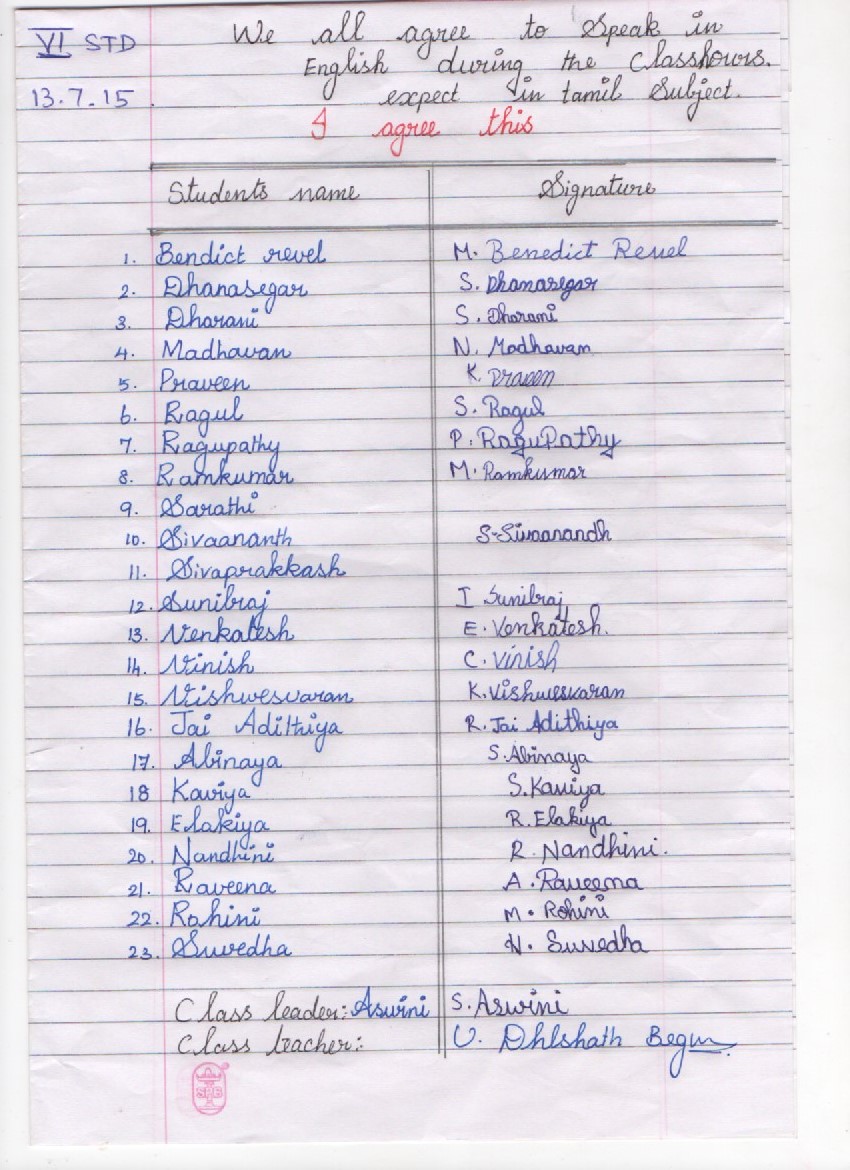 VI STD
We all agree to Speak in
English during the Classhours.
13.7.15. expect in tamil Subject.
I agree this
Students name Signature
1. Bendict revel M. Benedict Revel
2. Dhanasegar S. Dhanasegar
3. Dharani S. Dharani
4. Madhavan N. Madhavan
5. Praveen K. Praven
6. Ragul S. Ragul
7. Ragupathy P. RaguPathy
8. Ramkumar M. Ramkumar
9. Sarathi
10. Sivaananth S-Sivaanandh
11. Sivaprakkash
12. Sunilraj I Sunilraj
13. Venkatesh E. Venkatesh.
14. Vinish C. Vinish
15. Vishwesvaran K. Vishwesvaran
16. Jai Adithiya R. Jai Adithiya
17. Abinaya S. Abinaya
18 Kaviya S. Kaviya
19. Elakiya R. Elakiya
20. Nandhini R. Nandhini.
21. Raveena A. Raveena
22. Rohini M. Rohini
23. Suvedha H. Suvedha
Class leader: Aswini S. Aswini
Class teacher: U. Dhlshath Begum
SPB